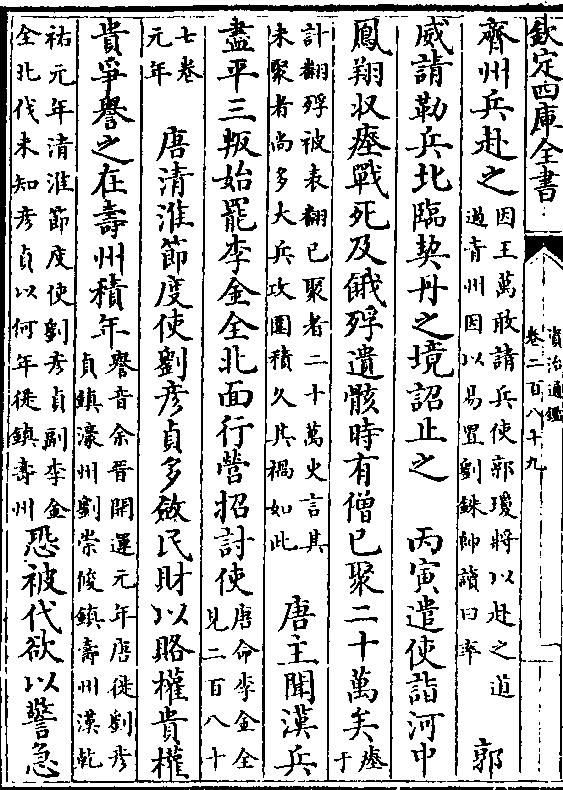 欽定四庫全書
資治通鑑
卷二百八十九
齊州兵赴之因王萬敢請兵使郭瓊將以赴之道過青州因以易置劉銖帥讀曰率 郭
威請勒兵北臨契丹之境詔止之 丙寅遣使詣河中
鳳翔収瘞戰死及餓殍遺骸時有僧已聚二十萬矣瘞于
計翻殍被表翻已聚者二十萬史言其未聚者尚多大兵攻圍積久其禍如此 唐主聞漢兵
盡平三叛始罷李金全北面行營招討使唐命李金全見二百八十
七卷元年 唐清淮節度使劉彥貞多斂民財以賂權貴權
貴爭譽之在壽州積年譽音余晉開運元年唐徙劉彥貞鎮濠州劉崇俊鎮壽州漢乾
祐元年清淮節度使劉彥貞副李金全北伐未知彥貞以何年徙鎮壽州恐被代欲以警急